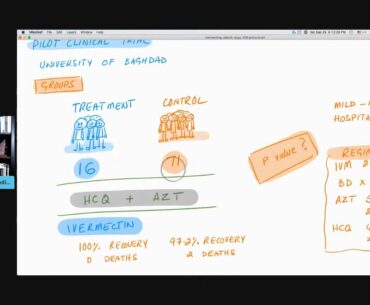 PILOT CLINICAL TRIAL
UNIVERSITY OF BAGHDAD
GROUPS
TREATMENT
CONTROL
16
71
P value?
HCQ + AZT
IVERMECTIN
100% RECOVERY
0 DEATHS
97.2% RECOVERY
2 DEATHS
MILD -
HOSPITAL
REGIM
IVM
BD X
AZT